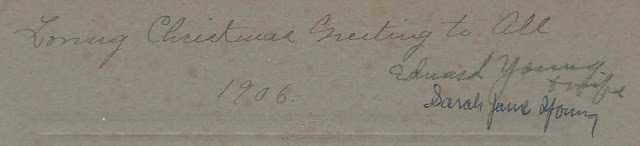 Loving Christmas Greeting to All
1906.
Edward Young
& Wife
Sarah Jane Young